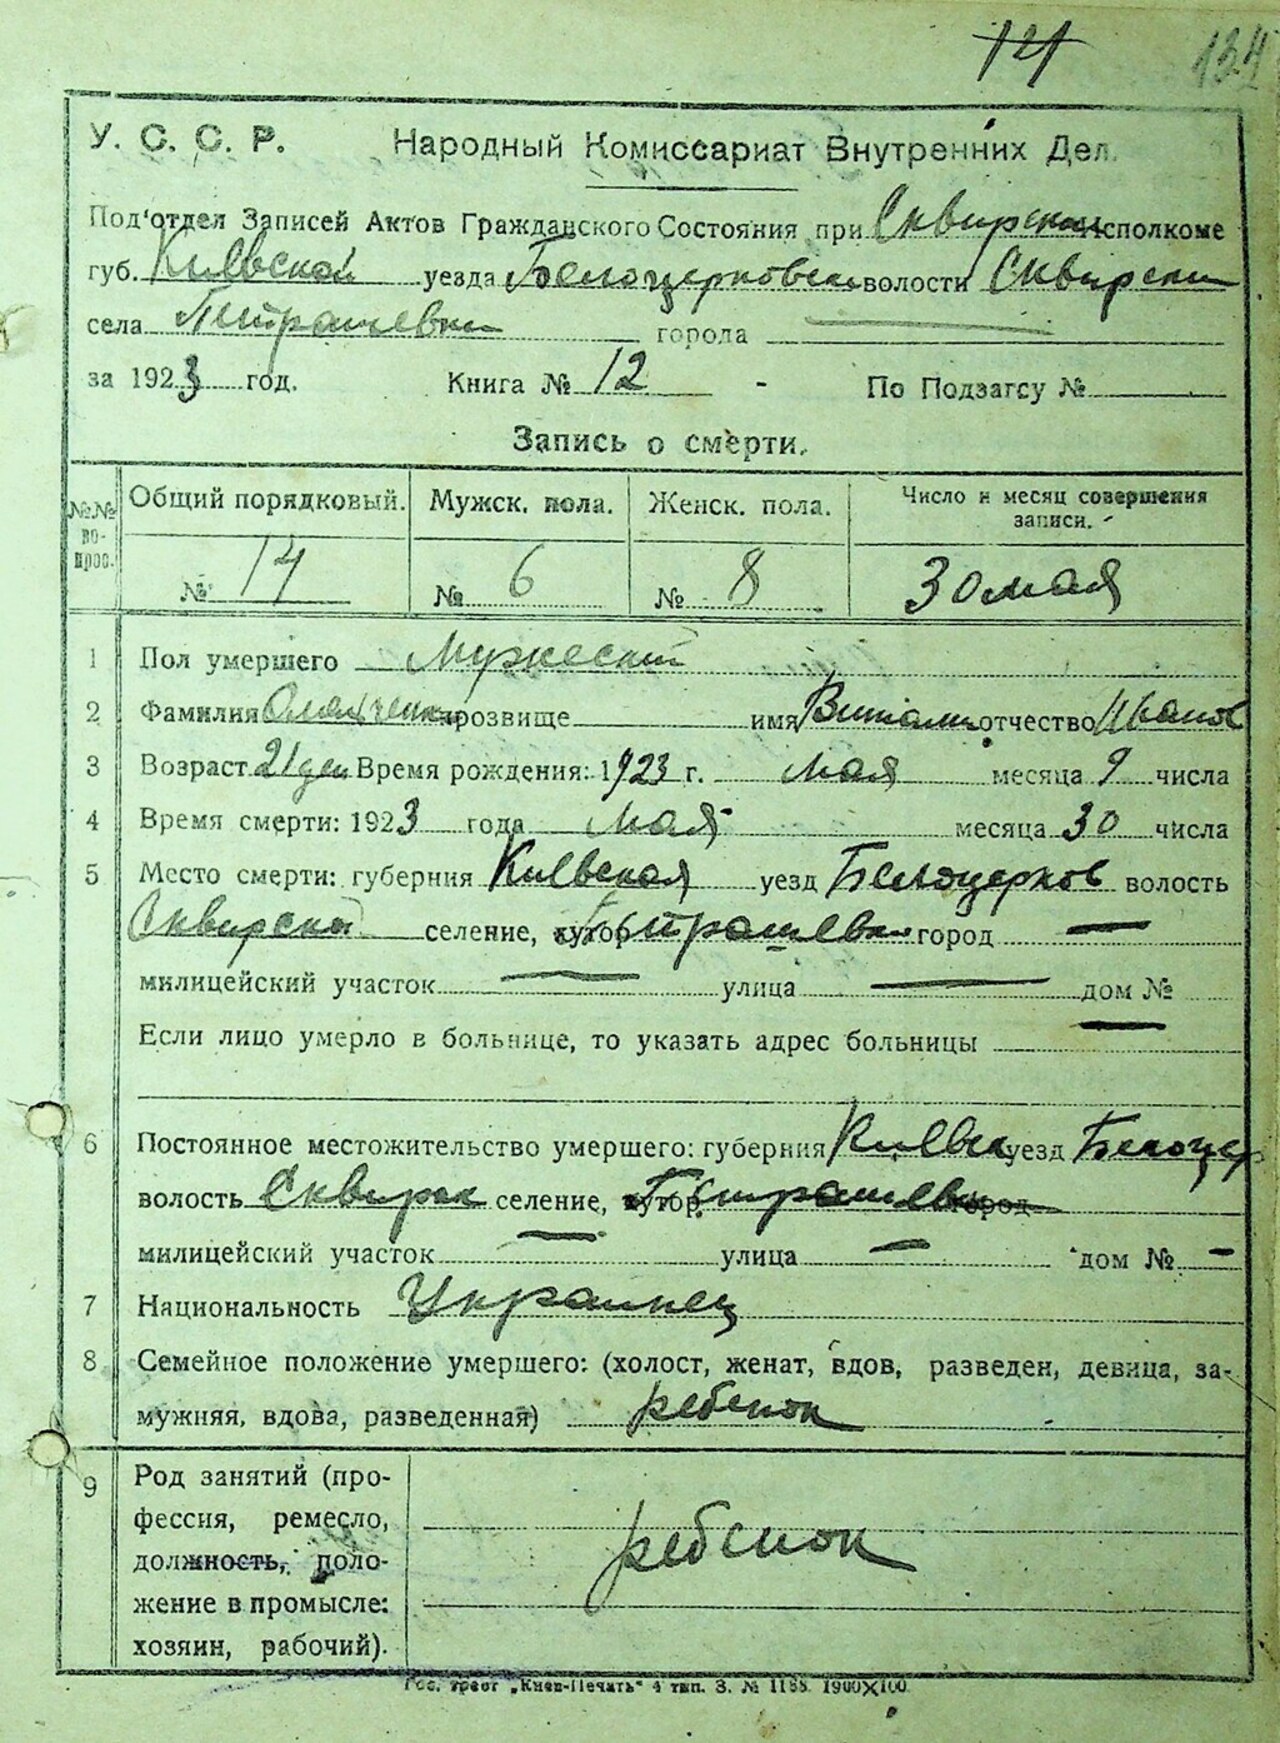 121 134
У. С. С. Р. Народный Комиссариат Внутренних Дел.
Под'отдел Записей Актов Гражданского Состояния при Сквирском исполкоме
губ. Киевской уезда Белоцерковск волости Сквирской
села Петрашевки города
за 1923 год. Книга № 12 - По Подзагсу №
Запись о смерти.
№№ во-прос. Общий порядковый. Мужск. пола. Женск. пола. Число и месяц совершения записи.
№ 14 № 6 № 8 30 мая
1 Пол умершего Мужеский
2 Фамилия прозвище имя Виталий отчество Иванов
3 Возраст 21 ден Время рождения: 1923 г. мая месяца 9 числа
4 Время смерти: 1923 года мая месяца 30 числа
5 Место смерти: губерния Киевская уезд Белоцерков волость
Сквирской селение, хутор Петрашевка город —
милицейский участок — улица — дом № —
Если лицо умерло в больнице, то указать адрес больницы
6 Постоянное местожительство умершего: губерния Киевск уезд Белоцер
волость Сквирск селение, хутор, Петрашевка город
милицейский участок — улица — дом № —
7 Национальность Украинец
8 Семейное положение умершего: (холост, женат, вдов, разведен, девица, за-
мужняя, вдова, разведенная) ребенок
9 Род занятий (про-
фессия, ремесло,
должность, поло-
жение в промысле:
хозяин, рабочий).
ребенок
Гос. трест „Киев-Печать“ 4 тип. З. № 1188 1900X100